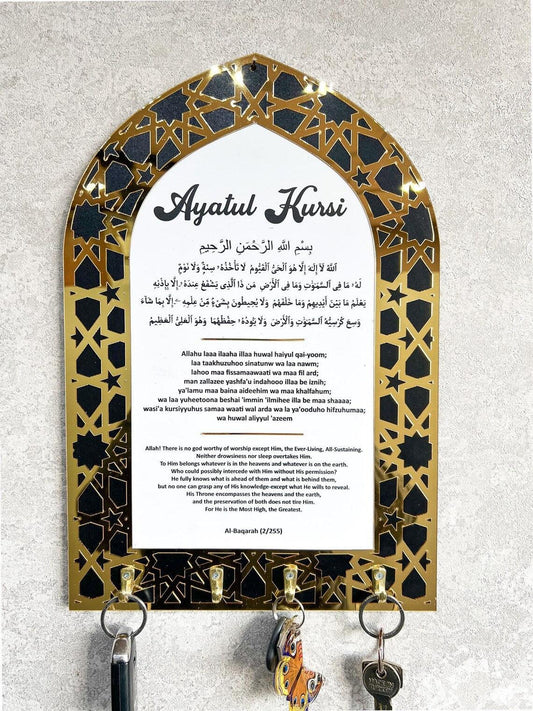 Ayatul Kursi
بِسْمِ اللَّهِ الرَّحْمَنِ الرَّحِيمِ
اَللَّهُ لَآ إِلَهَ إِلَّا هُوَ الْحَىُّ الْقَيُّومُ لَا تَأْخُذُهُ سِنَةٌ وَلَا نَوْمٌ
لَهُ مَا فِى السَّمَوَتِ وَمَا فِى الْأَرْضِ مَن ذَا الَّذِى يَشْفَعُ عِندَهُ إِلَّا بِإِذْنِهِ
يَعْلَمُ مَا بَيْنَ أَيْدِيهِمْ وَمَا خَلْفَهُمْ وَلَا يُحِيطُونَ بِشَىْءٍ مِّنْ عِلْمِهِ إِلَّا بِمَا شَآءَ
وَسِعَ كُرْسِيُّهُ السَّمَوَتِ وَالْأَرْضَ وَلَا يَئُودُهُ حِفْظُهُمَا وَهُوَ الْعَلِىُّ الْعَظِيمُ
Allahu laaa ilaaha illaa huwal haiyul qai-yoom;
laa taakhuzuhoo sinatunw wa laa nawm;
lahoo maa fissamaawaati wa maa fil ard;
man zallazee yashfa'u indahooo illaa be iznih;
ya'lamu maa baina aideehim wa maa khalfahum;
wa laa yuheetoona beshai 'immin 'ilmihee illa be maa shaaaa;
wasi'a kursiyyuhus samaa waati wal arda wa la ya'ooduho hifzuhumaa;
wa huwal aliyyul 'azeem
Allah! There is no god worthy of worship except Him, the Ever-Living, All-Sustaining.
Neither drowsiness nor sleep overtakes Him.
To Him belongs whatever is in the heavens and whatever is on the earth.
Who could possibly intercede with Him without His permission?
He fully knows what is ahead of them and what is behind them,
but no one can grasp any of His knowledge-except what He wills to reveal.
His Throne encompasses the heavens and the earth,
and the preservation of both does not tire Him.
For He is the Most High, the Greatest.
Al-Baqarah (2/255)